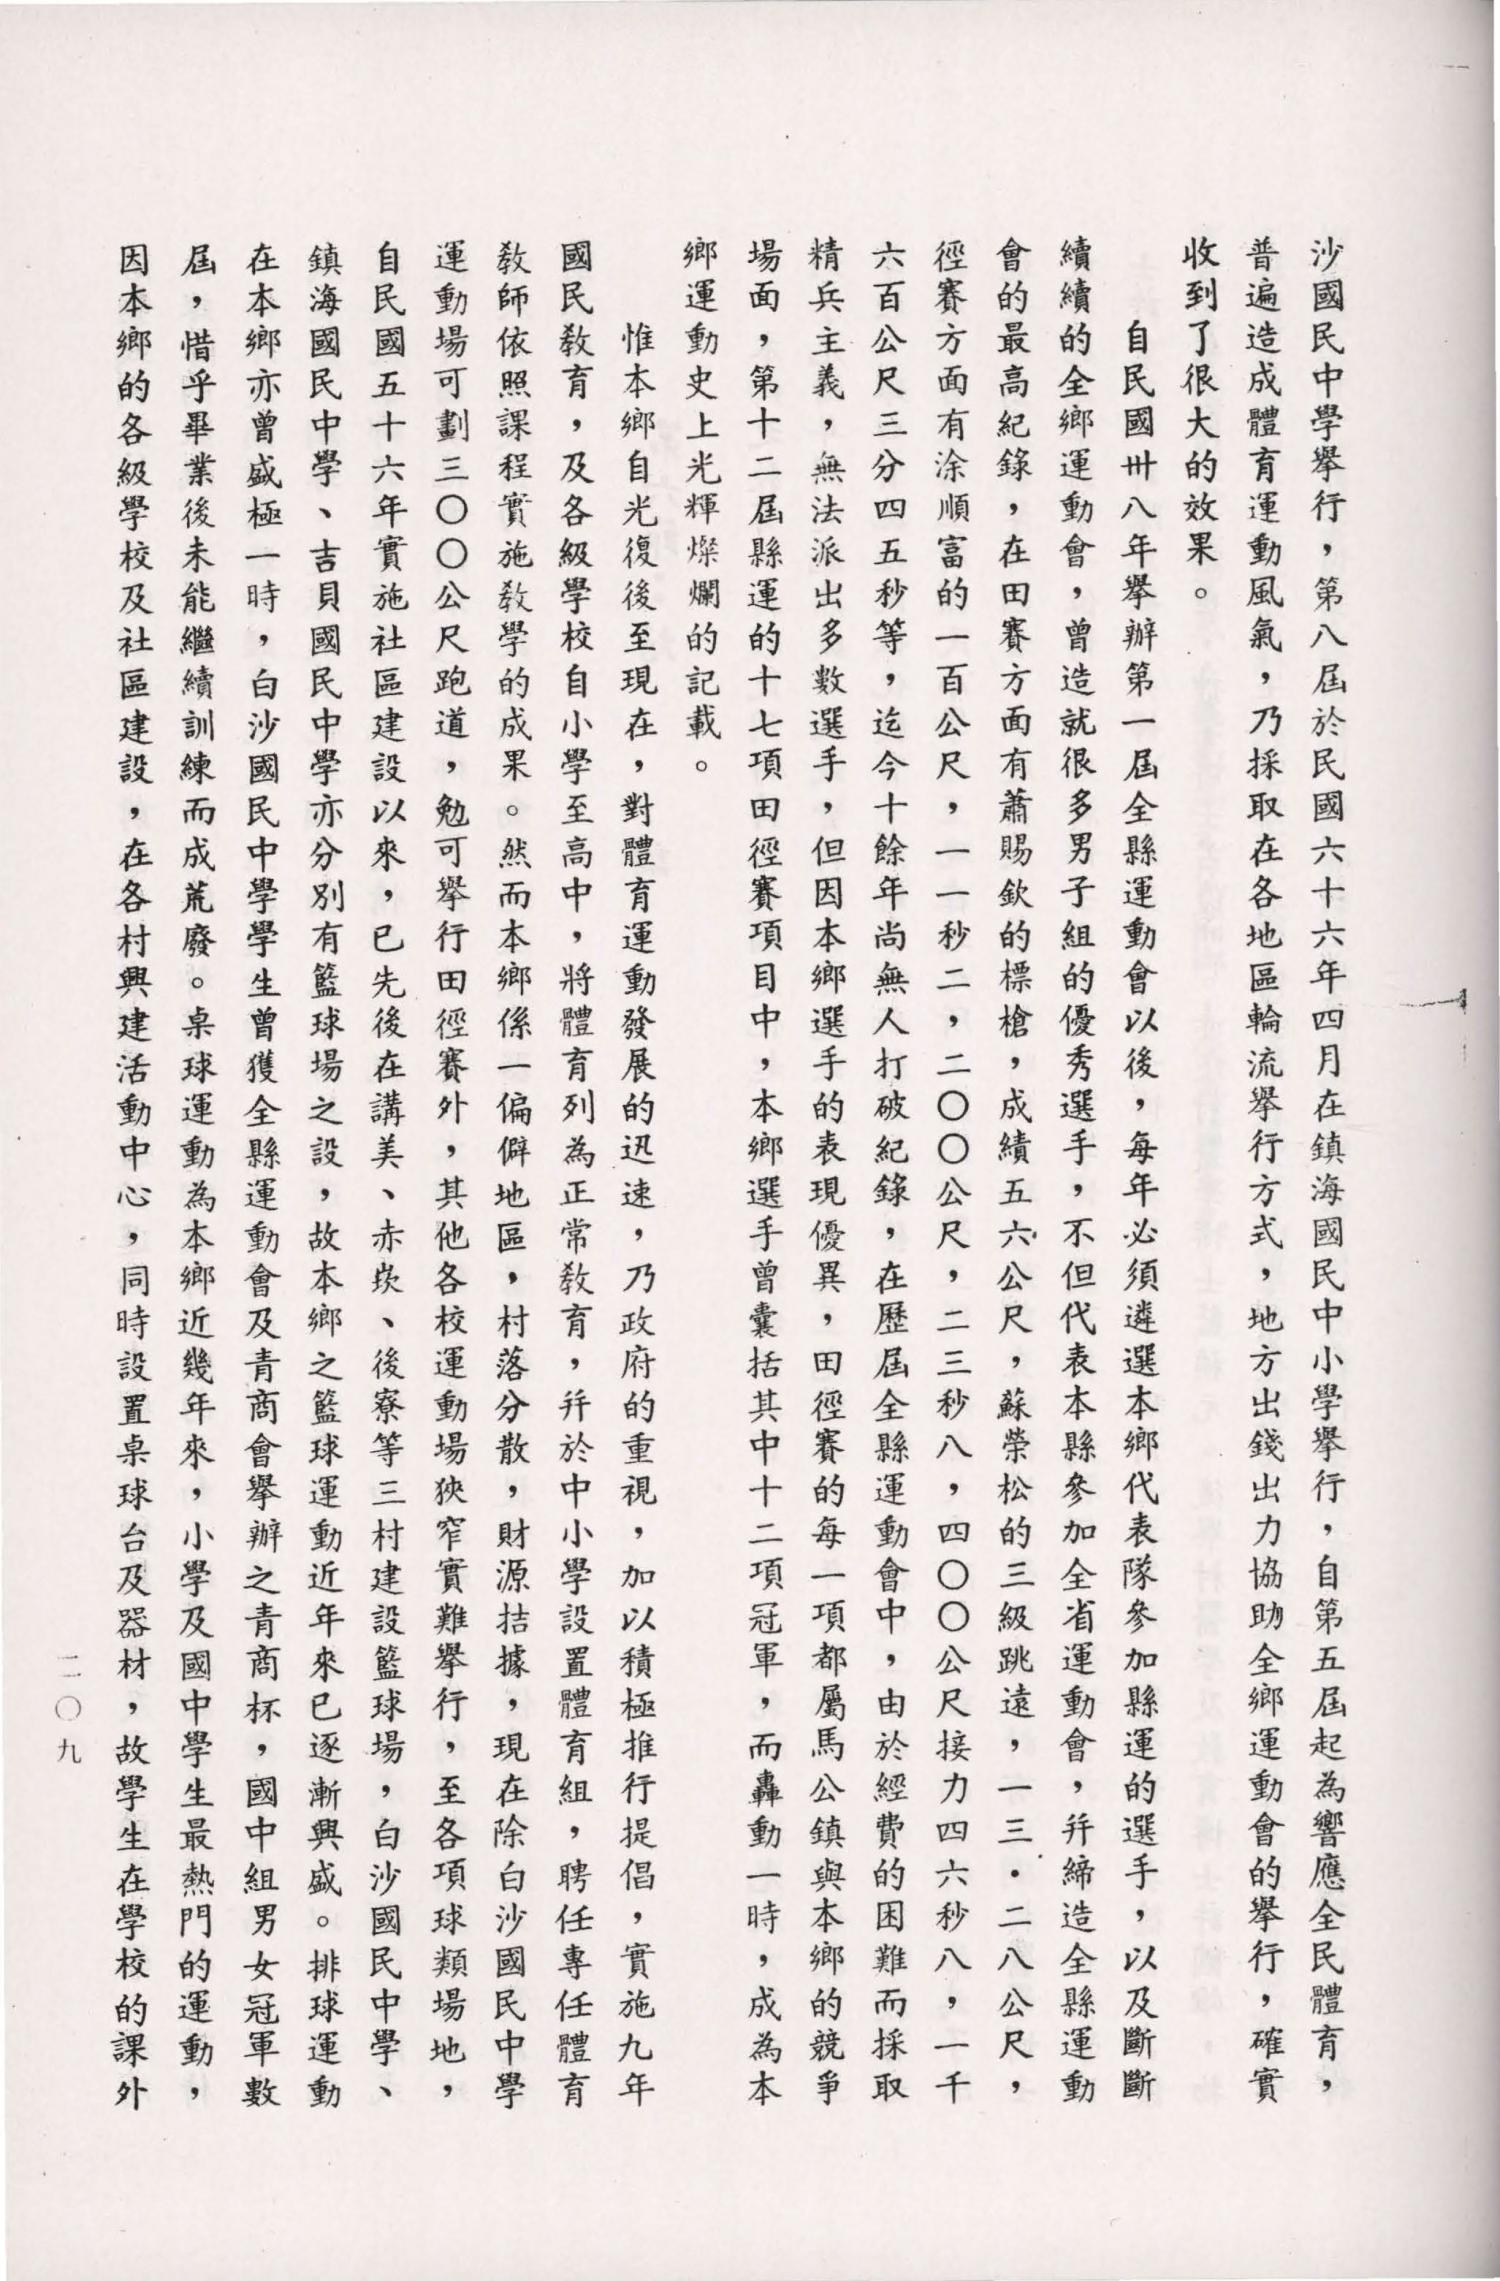 沙國民中學舉行，第八屆於民國六十六年四月在鎮海國民中小學舉行，自第五屆起為響應全民體育，
普遍造成體育運動風氣，乃採取在各地區輪流舉行方式，地方出錢出力協助全鄉運動會的舉行，確實
收到了很大的效果。
自民國卅八年舉辦第一屆全縣運動會以後，每年必須遴選本鄉代表隊參加縣運的選手，以及斷斷
續續的全鄉運動會，曾造就很多男子組的優秀選手，不但代表本縣參加全省運動會，幷締造全縣運動
會的最高紀錄，在田賽方面有蕭賜欽的標槍，成績五六公尺，蘇榮松的三級跳遠，一三．二八公尺，
徑賽方面有涂順富的一百公尺，一一秒二，二〇〇公尺，二三秒八，四〇〇公尺接力四六秒八，一千
六百公尺三分四五秒等，迄今十餘年尚無人打破紀錄，在歷屆全縣運動會中，由於經費的困難而採取
精兵主義，無法派出多數選手，但因本鄉選手的表現優異，田徑賽的每一項都屬馬公鎮與本鄉的競爭
場面，第十二屆縣運的十七項田徑賽項目中，本鄉選手曾囊括其中十二項冠軍，而轟動一時，成為本
鄉運動史上光輝燦爛的記載。
惟本鄉自光復後至現在，對體育運動發展的迅速，乃政府的重視，加以積極推行提倡，實施九年
國民敎育，及各級學校自小學至高中，將體育列為正常敎育，幷於中小學設置體育組，聘任專任體育
敎師依照課程實施敎學的成果。然而本鄉係一偏僻地區，村落分散，財源拮據，現在除白沙國民中學
運動場可劃三〇〇公尺跑道，勉可舉行田徑賽外，其他各校運動場狹窄實難舉行，至各項球類場地，
自民國五十六年實施社區建設以來，已先後在講美、赤崁、後寮等三村建設籃球場，白沙國民中學、
鎮海國民中學、吉貝國民中學亦分別有籃球場之設，故本鄉之籃球運動近年來已逐漸興盛。排球運動
在本鄉亦曾盛極一時，白沙國民中學學生曾獲全縣運動會及青商會舉辦之青商杯，國中組男女冠軍數
屆，惜乎畢業後未能繼續訓練而成荒廢。桌球運動為本鄉近幾年來，小學及國中學生最熱門的運動，
因本鄉的各級學校及社區建設，在各村興建活動中心，同時設置桌球台及器材，故學生在學校的課外
二〇九